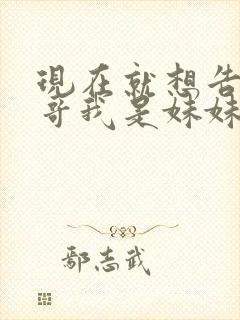 现在就想告
哥我是妹妹
鄢志武